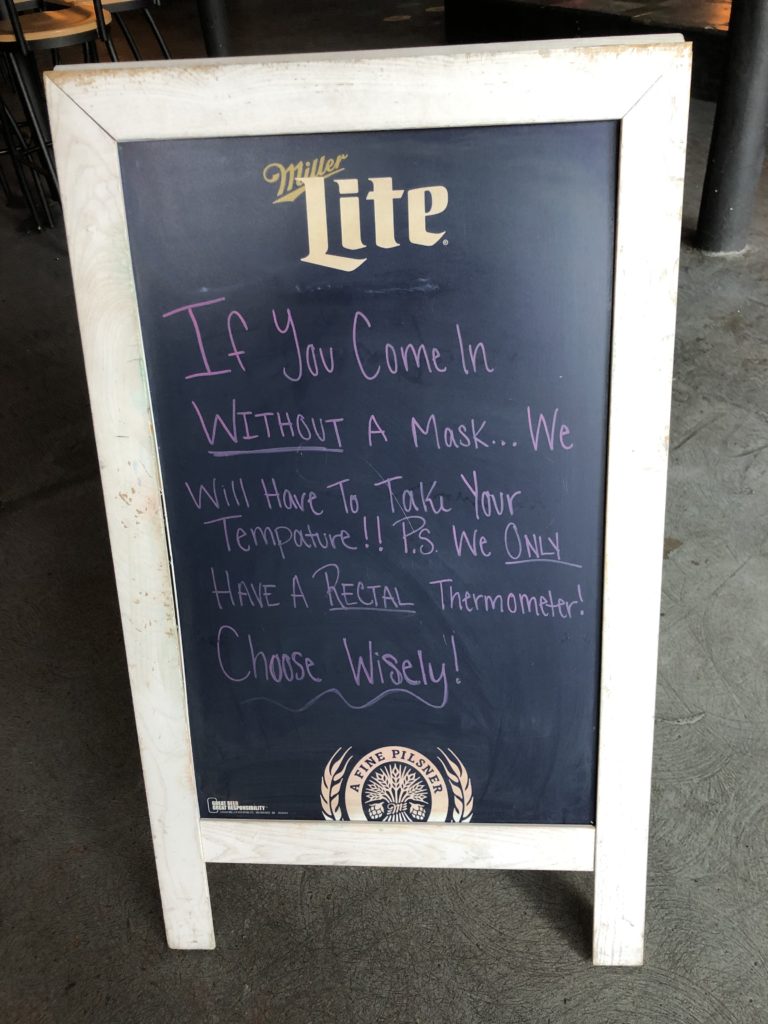 Miller
Lite
If You Come In
WITHOUT A Mask... We
Will Have To Take Your
Tempature!! P.S. We ONLY
HAVE A RECTAL Thermometer!
Choose Wisely!
A FINE PILSNER
GREAT BEER
GREAT RESPONSIBILITY